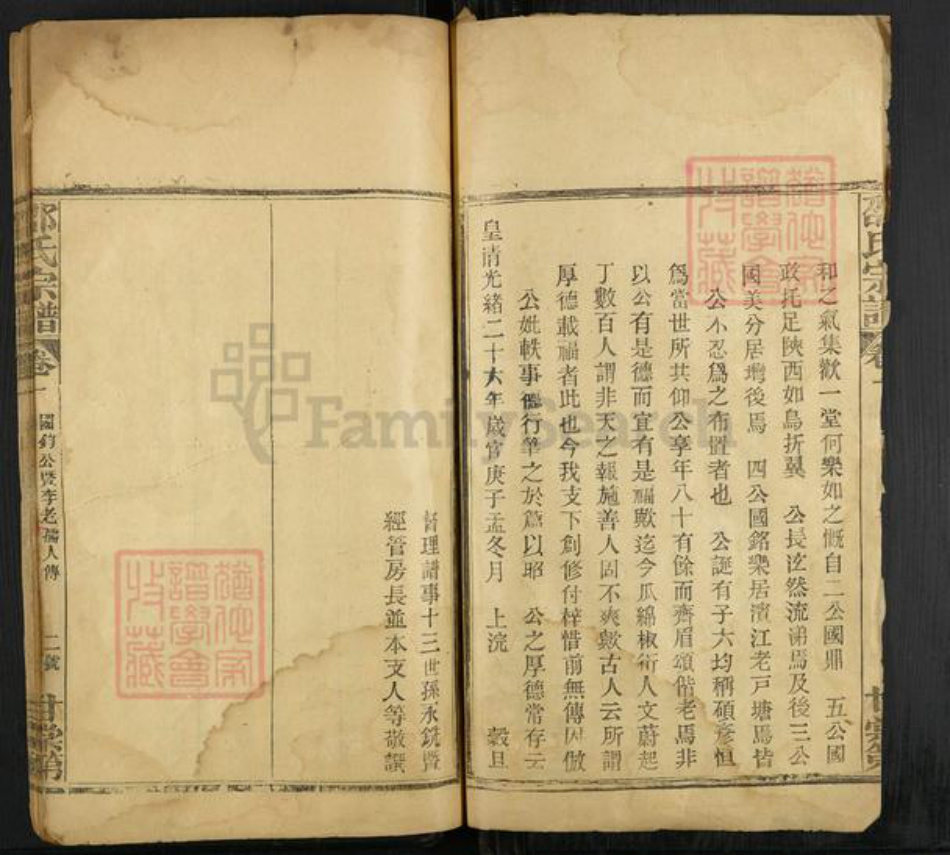 和之氣集歡一堂何樂如之慨自二公國鼎　五公國
政托足陝西如鳥折翼　公長泫然流涕焉及後三公
國美分居塆後焉　四公國銘樂居濱江老戸塘焉皆
公不忍爲之布置者也　公誕有子六均稱碩彥恒
爲當世所共仰公享年八十有餘而齊眉頌偕老焉非
以公有是德而宜有是福歟迄今瓜綿椒衍人文蔚起
丁數百人謂非天之報施善人固不爽歟古人云所謂
厚德載福者此也今我支下創修付梓惜前無傳因倣
公妣軼事德行筆之於篇以昭　公之厚德常存云
皇清光緒二十六年歲官庚子孟冬月　上浣　穀旦
督理譜事十三世孫永銑暨
經管房長並本支人等敬譔
邵氏宗譜　卷一　國鈞公暨李老孺人傳　二號　甘棠第
邵氏宗譜　卷一　甘棠第
猶他家譜學會收藏
猶他家譜學會收藏
FamilySearch